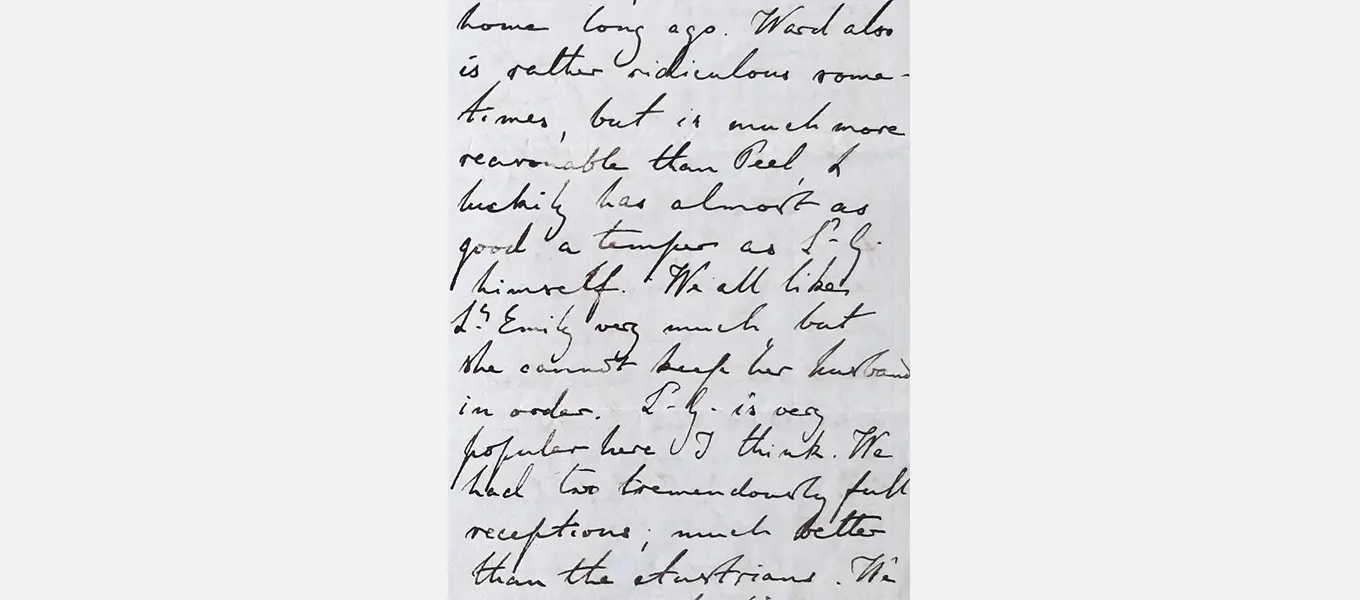 home long ago. Ward also
is rather ridiculous some-
times, but is much more
reasonable than Peel, &
luckily has almost as
good a temper as Ld G.
himself. We all like
Ly Emily very much, but
she cannot keep her husband
in order. Ld G. is very
popular here I think. We
had two tremendously full
receptions; much better
than the Austrians. We